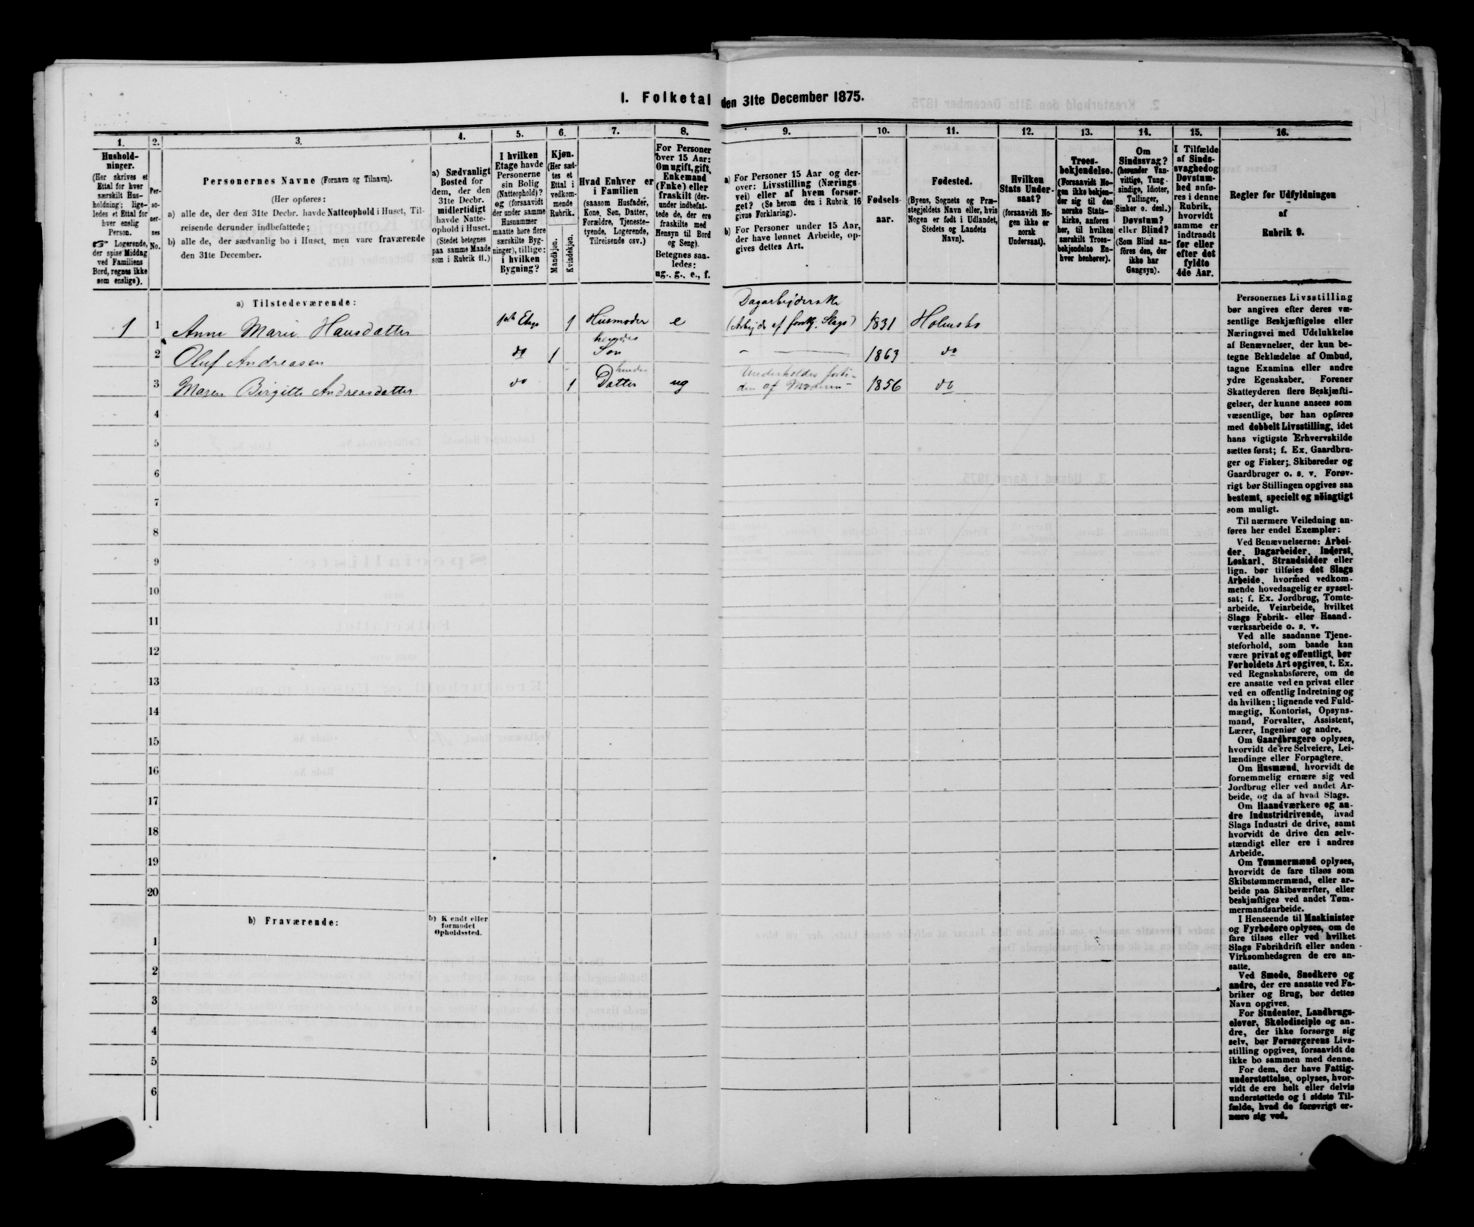 1. Folketal den 31te December 1875.
1.
Hushold-
ninger.
(Her skrives et
Ettal for hver
særskilt Hus-
holdning; lige-
ledes et Ettal for
hver enslig
Person.
☞ Logerende,
der spise Middag
ved Familiens
Bord, regnes ikke
som enslige).
2.
Per-
so-
ner-
nes
No.
3.
Personernes Navne (Fornavn og Tilnavn).
(Her opføres:
a) alle de, der den 31te Decbr. havde Natteophold i Huset, Til-
reisende derunder indbefattede;
b) alle de, der sædvanlig bo i Huset, men vare fraværende
den 31te December.
4.
a) Sædvanligt
Bosted for
dem, der den
31te Decbr.
midlertidigt
havde Natte-
ophold i Huset.
(Stedet betegnes
paa samme Maade
som i Rubrik 11.)
5.
I hvilken
Etage havde
Personerne
sin Bolig
(Natteophold)?
og (forsaavidt
der under samme
Husnummer
maatte høre flere
særskilte Byg-
ninger), tillige:
i hvilken
Bygning?
6.
Kjøn.
(Her sæt-
tes et
Ettal i
vedkom-
mende
Rubrik.
Mandkjøn.
Kvindekjøn.
7.
Hvad Enhver er
i Familien
(saasom Husfader,
Kone, Søn, Datter,
Forældre, Tjeneste-
tyende, Logerende,
Tilreisende osv.)
8.
For Personer
over 15 Aar:
Om ugift, gift,
Enkemand
(Enke) eller
fraskilt (der-
under indbefat-
tede de, der ere
fraskilte med
Hensyn til Bord
og Seng).
Betegnes saa-
ledes:
ug., g., e., f.
9.
a) For Personer 15 Aar og der-
over: Livsstilling (Nærings-
vei) eller af hvem forsør-
get? (Se herom den i Rubrik 16
givne Forklaring).
b) For Personer under 15 Aar,
der have lønnet Arbeide, op-
gives dettes Art.
10.
Fødsels-
aar.
11.
Fødested.
(Byens, Sognets og Præ-
stegjeldets Navn eller, hvis
Nogen er født i Udlandet,
Stedets og Landets
Navn).
12.
Hvilken
Stats Under-
saat?
(forsaavidt No-
gen ikke er
norsk
Undersaat).
13.
Troes-
bekjendelse.
(Forsaavidt No-
gen ikke bekjen-
der sig til den
norske Stats-
kirke, anføres
her, til hvilken
særskilt Troes-
bekjendelse En-
hver henhører).
14.
Om
Sindssvag?
(herunder Van-
vittige, Tung-
sindige, Idioter,
Tullinger,
Sinker o. desl.)
Døvstum?
eller Blind?
(Som Blind an-
føres den, der
ikke har
Gangsyn).
15.
I Tilfælde
af Sinds-
svaghed og
Døvstum-
hed anfø-
res i denne
Rubrik,
hvorvidt
samme er
indtraadt
før eller
efter det
fyldte
4de Aar.
16.
Regler for Udfyldningen
af
Rubrik 9.
a) Tilstedeværende:
Dagarbejderske
1 1 Anne Marie Hansdatter 1ste Etage 1 Husmoder e (Arbejde af forskj. Slags) 1831 Holmsbo
2 Oluf Andreasen do 1 hendes Søn 1863 do
3 Maren Birgitte Andreasdatter do 1 hendes Datter ug Underholdes forti-
den af Moderen 1856 do
4
5
6
7
8
9
10
11
12
13
14
15
16
17
18
19
20
b) Fraværende:
b) Kjendt eller
formodet
Opholdssted.
1
2
3
4
5
6
Personernes Livsstilling
bør angives efter deres væ-
sentlige Beskjæftigelse eller
Næringsvei med Udelukkelse
af Benævnelser, der kun be-
tegne Beklædelse af Ombud,
tagne Examina eller andre
ydre Egenskaber. Forener
Skatteyderen flere Beskjæfti-
gelser, der kunne ansees som
væsentlige, bør han opføres
med dobbelt Livsstilling, idet
hans vigtigste Erhvervskilde
sættes først; f. Ex. Gaardbru-
ger og Fisker; Skibsreder og
Gaardbruger o. s. v. Forøv-
rigt bør Stillingen opgives saa
bestemt, specielt og nöiagtigt
som muligt.
Til nærmere Veiledning an-
føres her endel Exempler:
Ved Benævnelserne: Arbei-
der, Dagarbeider, Inderst,
Løskarl, Strandsidder eller
lign. bør tilføies det Slags
Arbeide, hvormed vedkom-
mende hovedsagelig er syssel-
sat; f. Ex. Jordbrug, Tomte-
arbeide, Veiarbeide, hvilket
Slags Fabrik- eller Haand-
værksarbeide o. s. v.
Ved alle saadanne Tjene-
steforhold, som baade kan
være privat og offentligt, bør
Forholdets Art opgives, t. Ex.
ved Regnskabsførere, om de
ere ansatte ved en privat eller
ved en offentlig Indretning og
da hvilken; lignende ved Fuld-
mægtig, Kontorist, Opsyns-
mand, Forvalter, Assistent,
Lærer, Ingeniør og andre.
Om Gaardbrugere oplyses,
hvorvidt de ere Selveiere, Lei-
lændinge eller Forpagtere.
Om Husmænd, hvorvidt de
fornemmelig ernære sig ved
Jordbrug eller ved andet Ar-
beide, og da af hvad Slags.
Om Haandværkere og an-
dre Industridrivende, hvad
Slags Industri de drive, samt
hvorvidt de drive den selv-
stændigt eller ere i andres
Arbeide.
Om Tømmermænd oplyses,
hvorvidt de fare tilsøs som
Skibstømmermænd, eller ar-
beide paa Skibsværfter, eller
beskjæftiges ved andet Tøm-
mermandsarbeide.
I Henseende til Maskinister
og Fyrbødere oplyses, om de
fare tilsøs eller ved hvilket
Slags Fabrikdrift eller anden
Virksomhedsgren de ere an-
satte.
Ved Smede, Snedkere og
andre, der ere ansatte ved Fa-
briker og Brug, bør dettes
Navn opgives.
For Studenter, Landbrugs-
elever, Skoledisciple og an-
dre, der ikke forsørge sig
selv, bør Forsørgerens Livs-
stilling opgives, forsaavidt de
ikke bo sammen med denne.
For dem, der have Fattig-
understøttelse, oplyses, hvor-
vidt de ere helt eller delvis
understøttede og i sidste Til-
fælde, hvad de forøvrigt er-
nære sig ved.